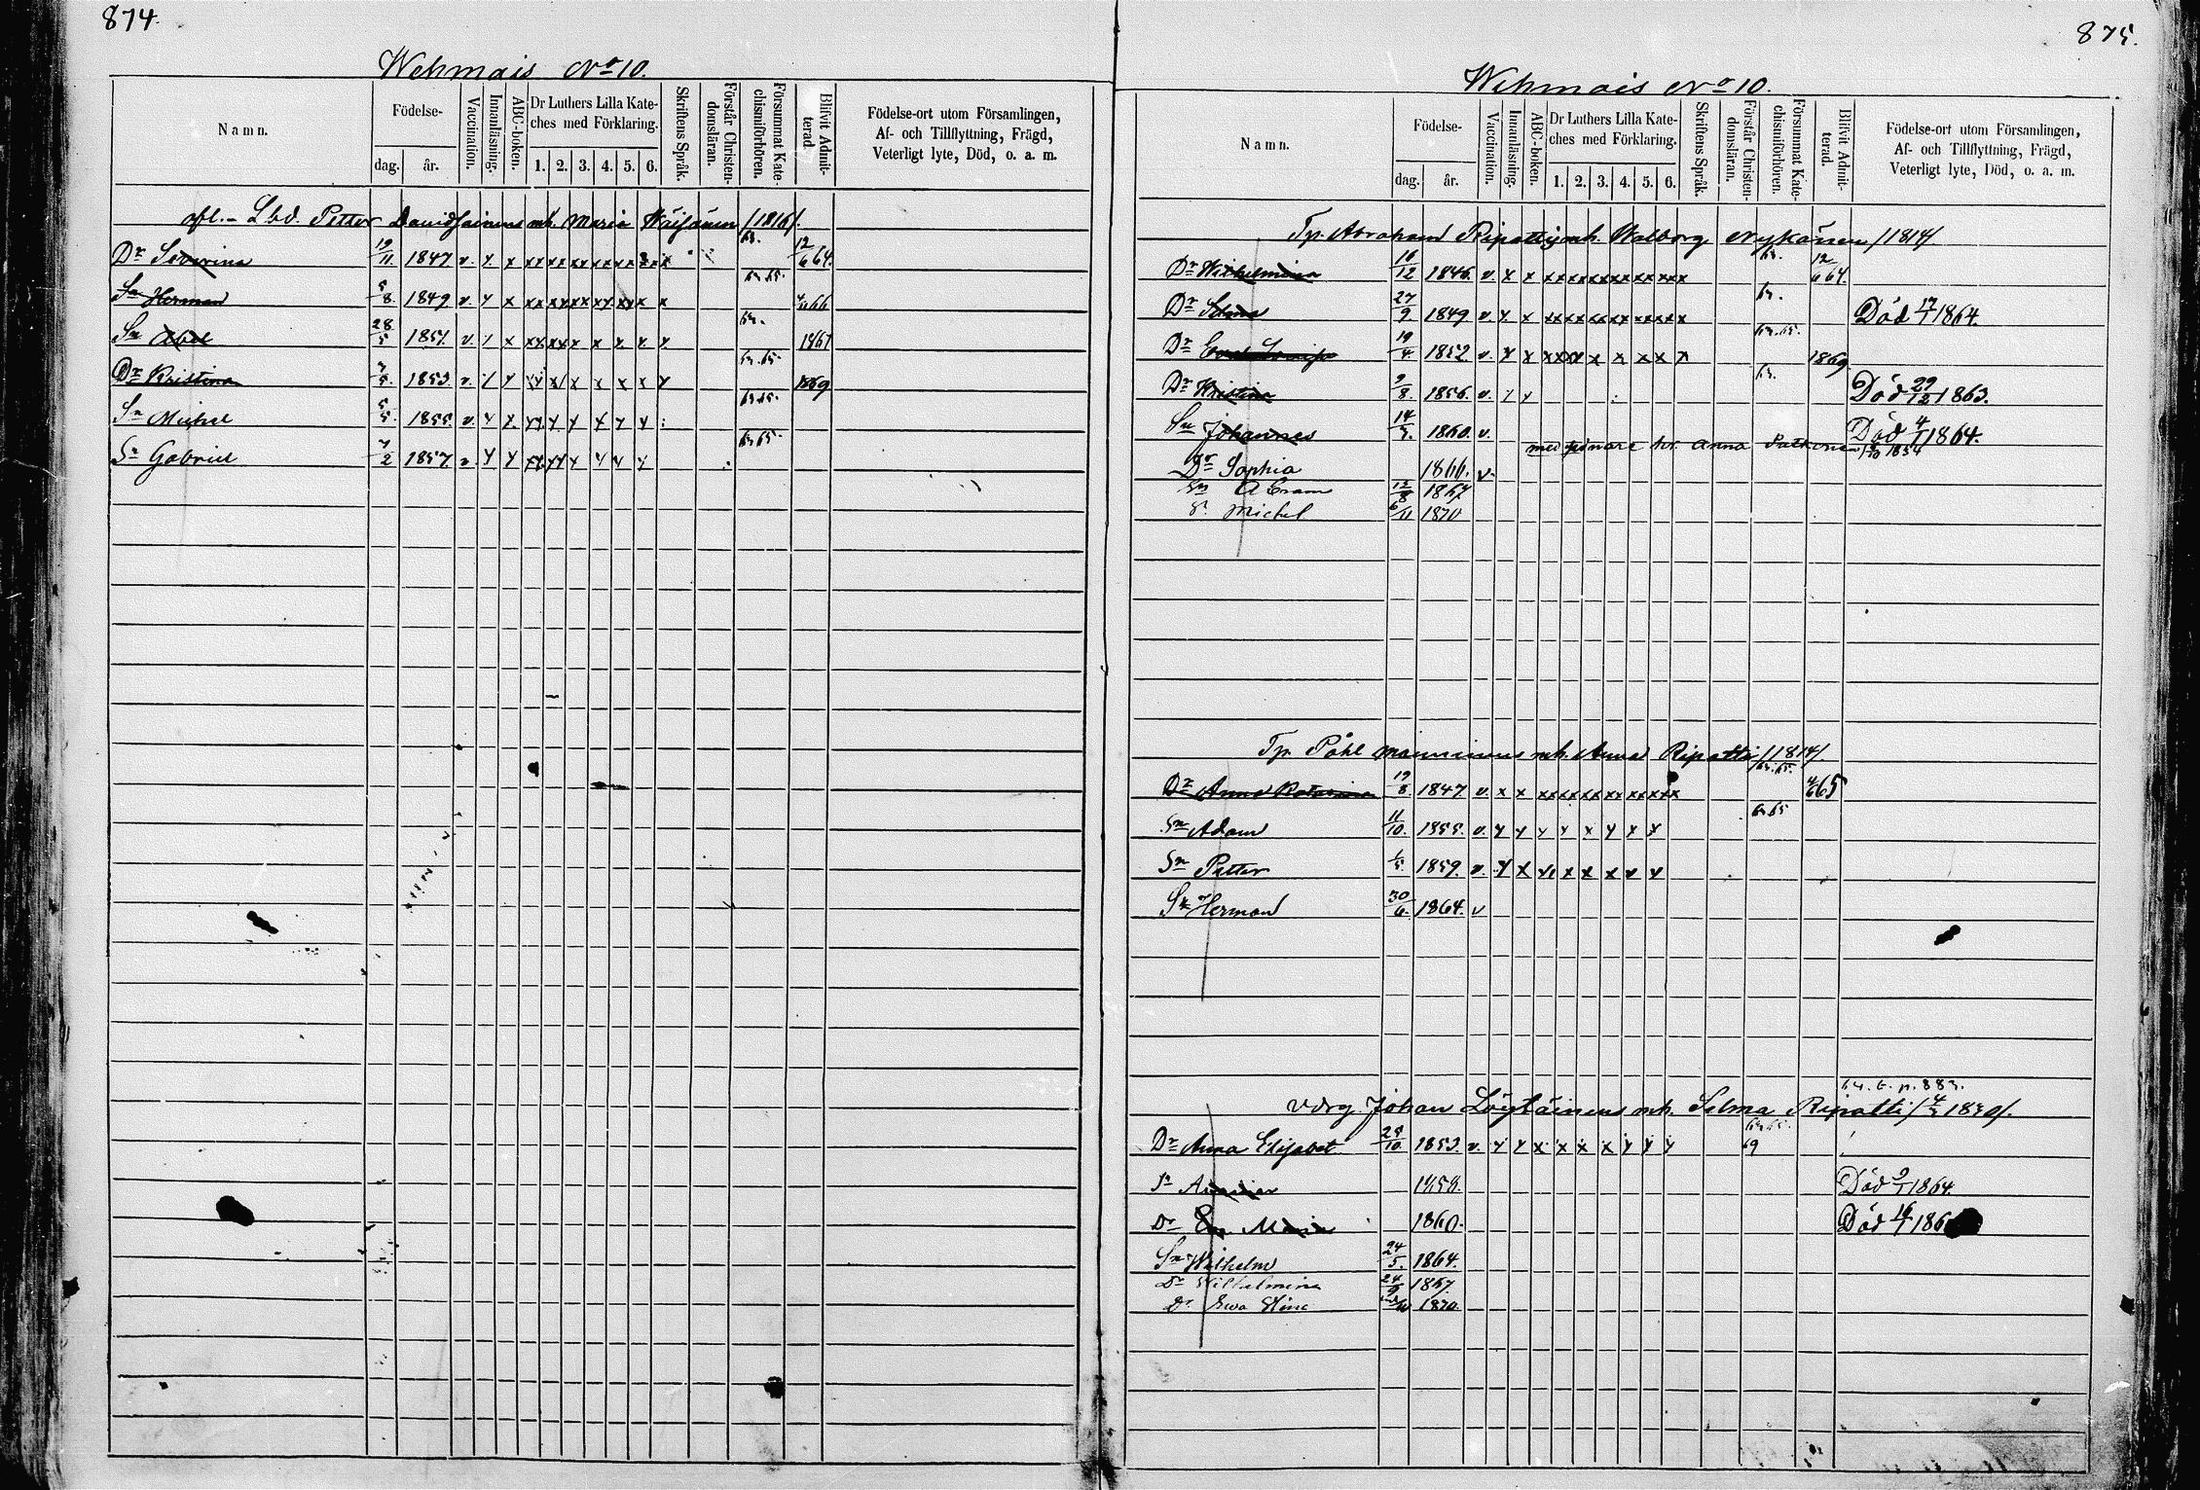 874.
Wehmais No 10.
Namn.
Födelse-
dag.
år.
Vaccination.
Innanläsning.
ABC-boken.
Dr Luthers Lilla Kate-
ches med Förklaring.
1. 2. 3. 4. 5. 6.
Skriftens Språk.
Förstår Christen-
domsläran.
Försummat Kate-
chismiförhören.
Blifvit Admit-
terad.
Födelse-ort utom Församlingen,
Af- och Tillflyttning, Frägd,
Veterligt lyte, Död, o. a. m.
afl. Lbd. Petter Davidsainens mh. Maria Väisänen /1816/.
Dr Severina 19/11 1847 v. x x xx xx xx xx xx x x 64. 12/6 64.
Sn Herman 5/8. 1849 v. x x xx xx xx xx xx x x 64 65. 66
Sn Abel 28/5 1851. v. x x xx xx x x x x x 64. 1867
Dr Kristina 1853. v. x x x x x x x x x 64. 65. 1869
Sn Michel 5/5. 1855 v. x x xx x x x x x 64 65.
Sn Gabriel 7/2 1857. v. x x xx xx x x x x 64 65.
875.
Wehmais No 10.
Namn.
Födelse-
dag.
år.
Vaccination.
Innanläsning.
ABC-boken.
Dr Luthers Lilla Kate-
ches med Förklaring.
1. 2. 3. 4. 5. 6.
Skriftens Språk.
Förstår Christen-
domsläran.
Försummat Kate-
chismiförhören.
Blifvit Admit-
terad.
Födelse-ort utom Församlingen,
Af- och Tillflyttning, Frägd,
Veterligt lyte, Död, o. a. m.
Tp. Abraham Ripattis mh. Walborg Nykänen /1814/.
Dr Wilhelmina 10/12 1846. v. x x xx xx xx xx xx xx x 64. 12/6 64.
Dr Selma 27/9 1849 v. x x xx xx xx xx xx xx x 64. Död 17/1 1864.
Dr 19/4. 1852 v. x x xx xx x x x x x 64. 65. 1869
Dr Kristina 9/8. 1856. v. x x 64. Död 29/12 1863.
Sn Johannes 14/3. 1860. v. Död 4/1 1864.
med senare hr. Anna 1834
Dr Sophia 1866. v.
Sn A Bram 12/8 1867
S. Michel 6/11 1870
Tp. Påhl Manninens mh. Anna Ripatti /1814/.
Dr Anna Katarina 19/8. 1847 v. x x xx xx xx xx xx xx 64. 65. 4/6 65
Sn Adam 11/10. 1855. v. x x x x x x x x 64 65
Sn Petter 1/5. 1859. v. x x x x x x x x
Sn Herman 30/6. 1864. v
64. t. p. 883.
Vdrg. Johan Löytäinens mh. Selma Ripatti / 1830/.
Dr Anna Elisabet 28/10 1853. v. x x x x x x x x x 64 65. 69
Sn 1858. Död 9/1 1864.
Dr Maria 1860. Död
Sn Wilhelm 24/5. 1864.
Dr Wilhelmina 24/9 1867.
Dr Ewa Stina 1870.